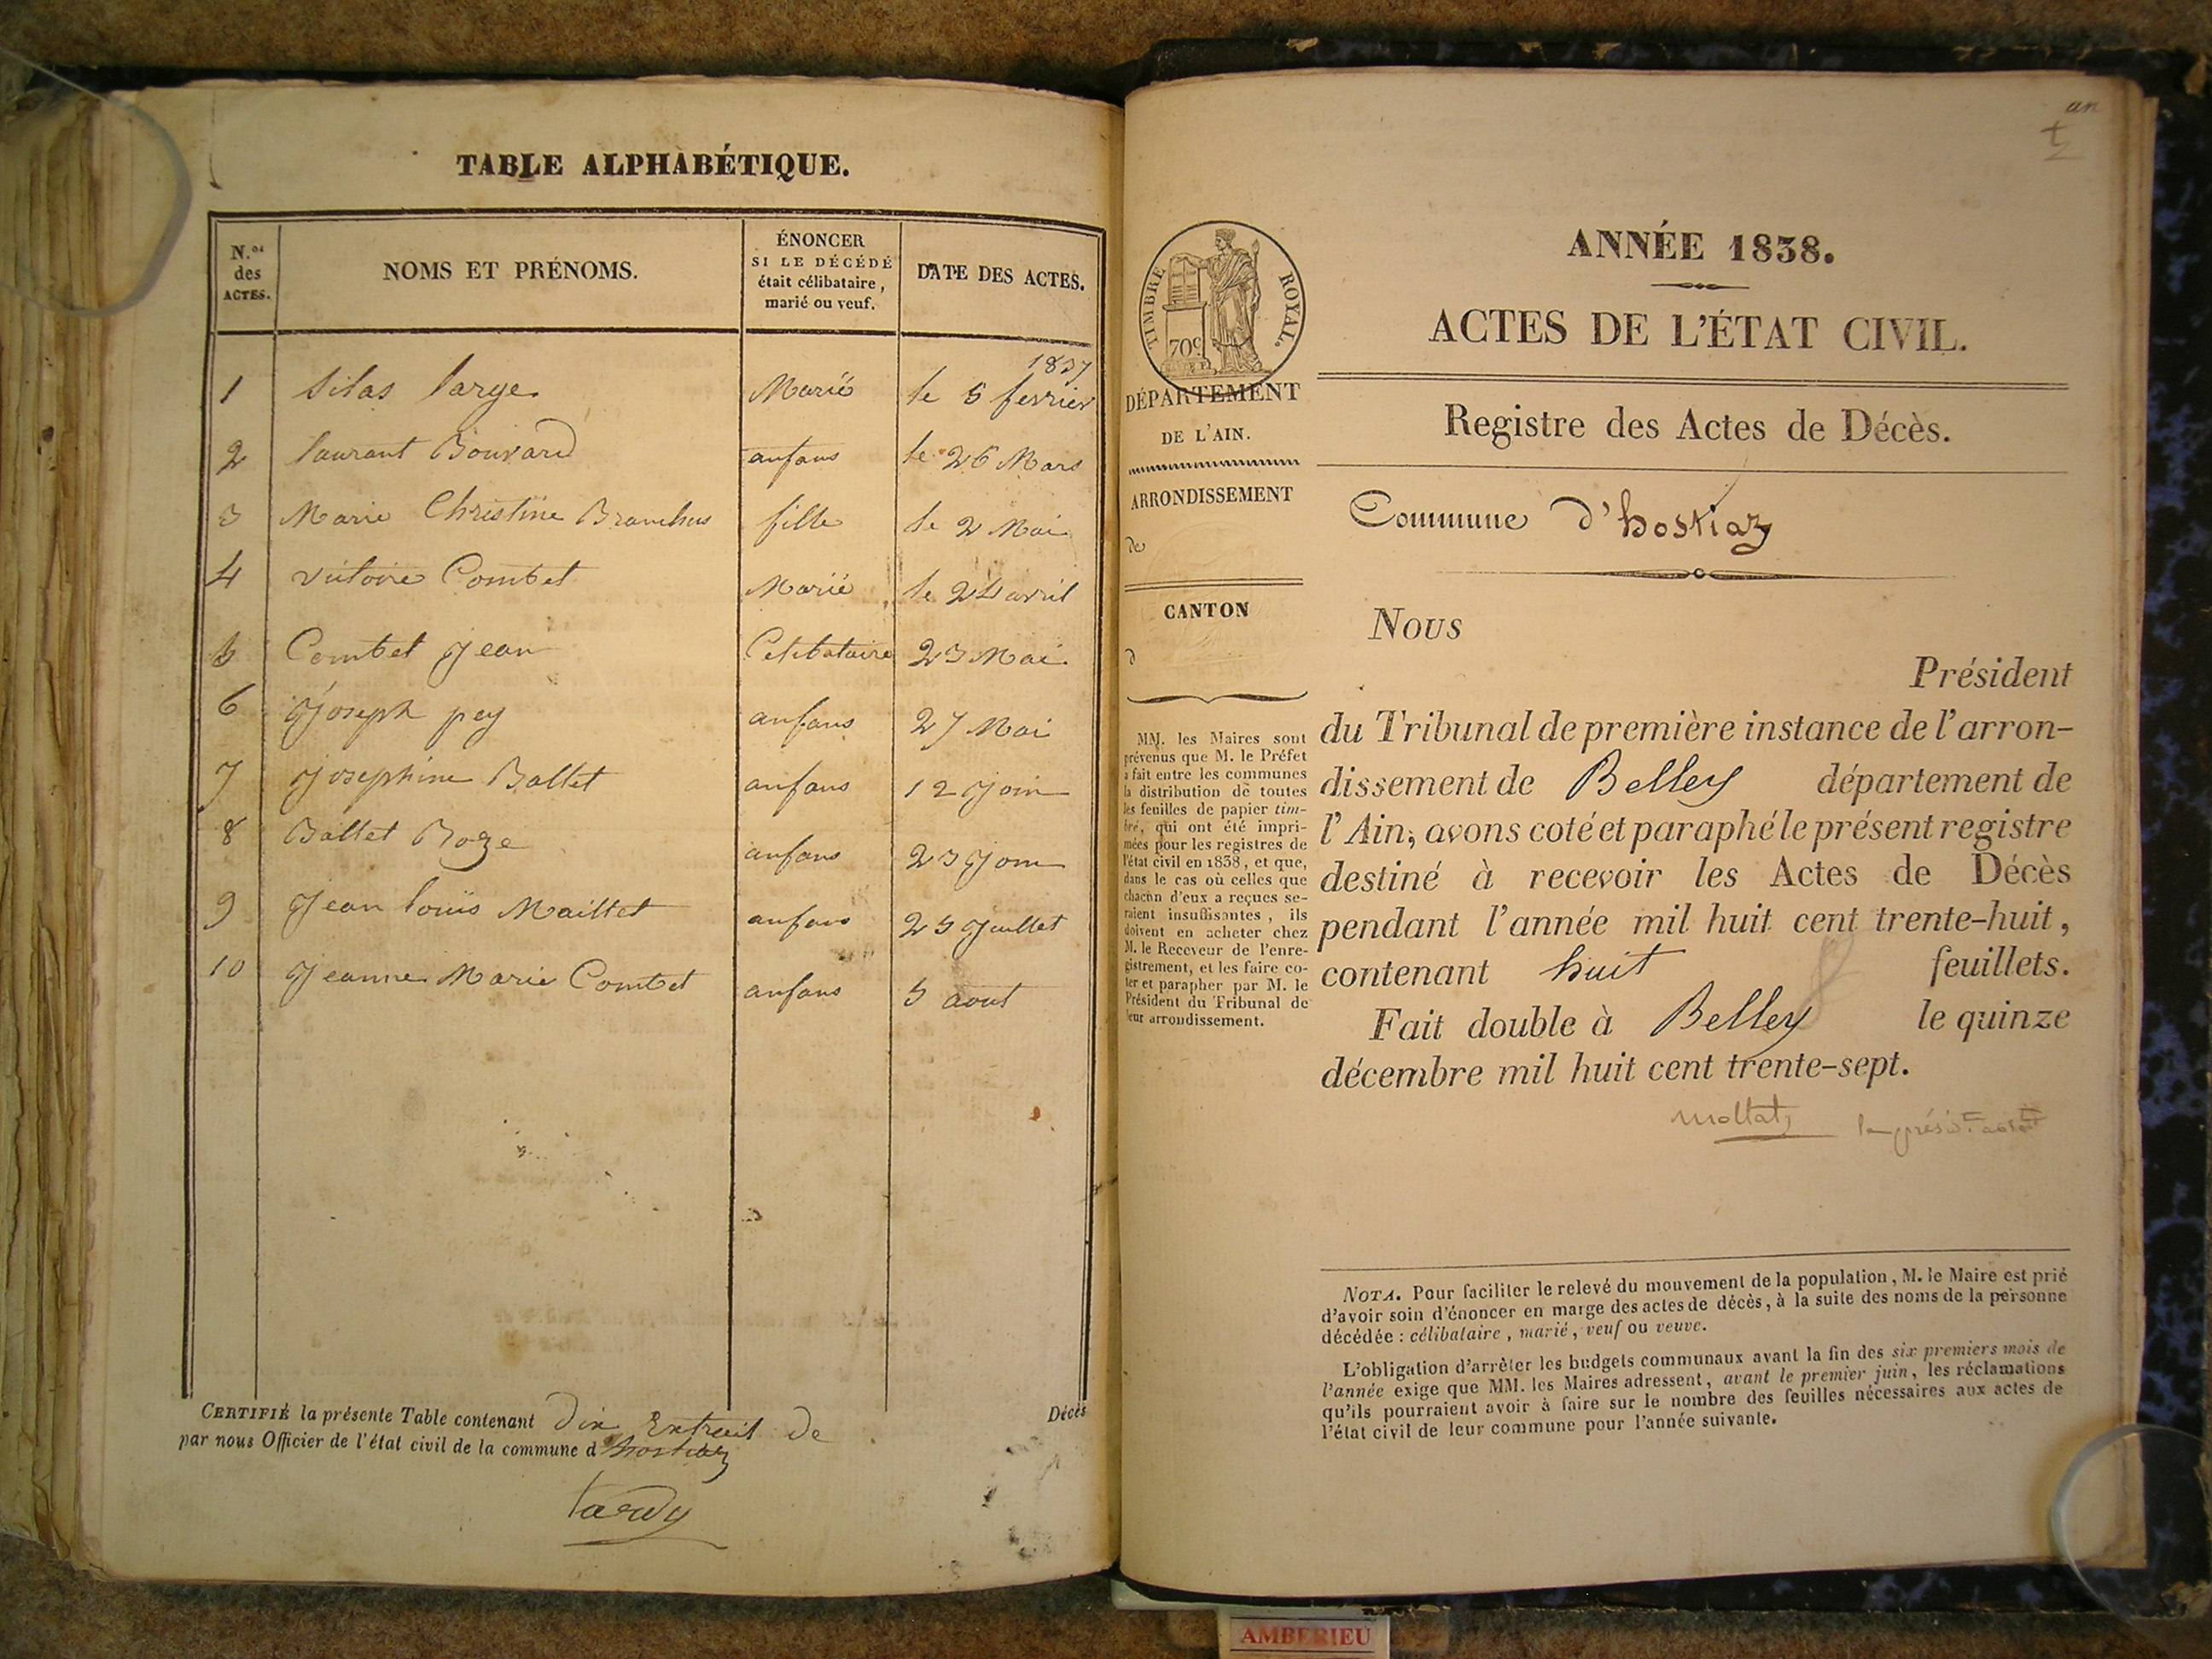 TABLE ALPHABÉTIQUE.
N.os des ACTES.
NOMS ET PRÉNOMS.
ÉNONCER
SI LE DÉCÉDÉ
était célibataire,
marié ou veuf.
DATE DES ACTES.
1837
1 Silas large Marié le 5 fevrier
2 laurant Bouvard anfans le 26 Mars
3 Marie Christine fille le 2 Mai
4 victoire Combet Marié le 24 avril
5 Combet Jean Celibataire 23 Mai
6 Joseph pey anfans 27 Mai
7 Josephine Ballet anfans 12 Join
8 Ballet Roze anfans 23 Join
9 Jean louis Maillet anfans 25 Juillet
10 Jeanne Marie Combet anfans 5 aout
CERTIFIÉ la présente Table contenant dix Extrait de Décès
par nous Officier de l'état civil de la commune d'hostiaz
tardy
an
TIMBRE ROYAL.
70c
DÉPARTEMENT
DE L'AIN.
ARRONDISSEMENT
de
CANTON
d
MM. les Maires sont
prévenus que M. le Préfet
a fait entre les communes
la distribution de toutes
les feuilles de papier tim-
bré, qui ont été impri-
mées pour les registres de
l'état civil en 1838, et que,
dans le cas où celles que
chacun d'eux a reçues se-
raient insuffisantes, ils
doivent en acheter chez
M. le Receveur de l'enre-
gistrement, et les faire co-
ter et parapher par M. le
Président du Tribunal de
leur arrondissement.
ANNÉE 1838.
ACTES DE L'ÉTAT CIVIL.
Registre des Actes de Décès.
Commune d'hostiaz
Nous
Président
du Tribunal de première instance de l'arron-
dissement de Belley département de
l'Ain, avons coté et paraphé le présent registre
destiné à recevoir les Actes de Décès
pendant l'année mil huit cent trente-huit,
contenant huit feuillets.
Fait double à Belley le quinze
décembre mil huit cent trente-sept.
NOTA. Pour faciliter le relevé du mouvement de la population, M. le Maire est prié
d'avoir soin d'énoncer en marge des actes de décès, à la suite des noms de la personne
décédée : célibataire, marié, veuf ou veuve.
L'obligation d'arrêter les budgets communaux avant la fin des six premiers mois de
l'année exige que MM. les Maires adressent, avant le premier juin, les réclamations
qu'ils pourraient avoir à faire sur le nombre des feuilles nécessaires aux actes de
l'état civil de leur commune pour l'année suivante.
AMBERIEU